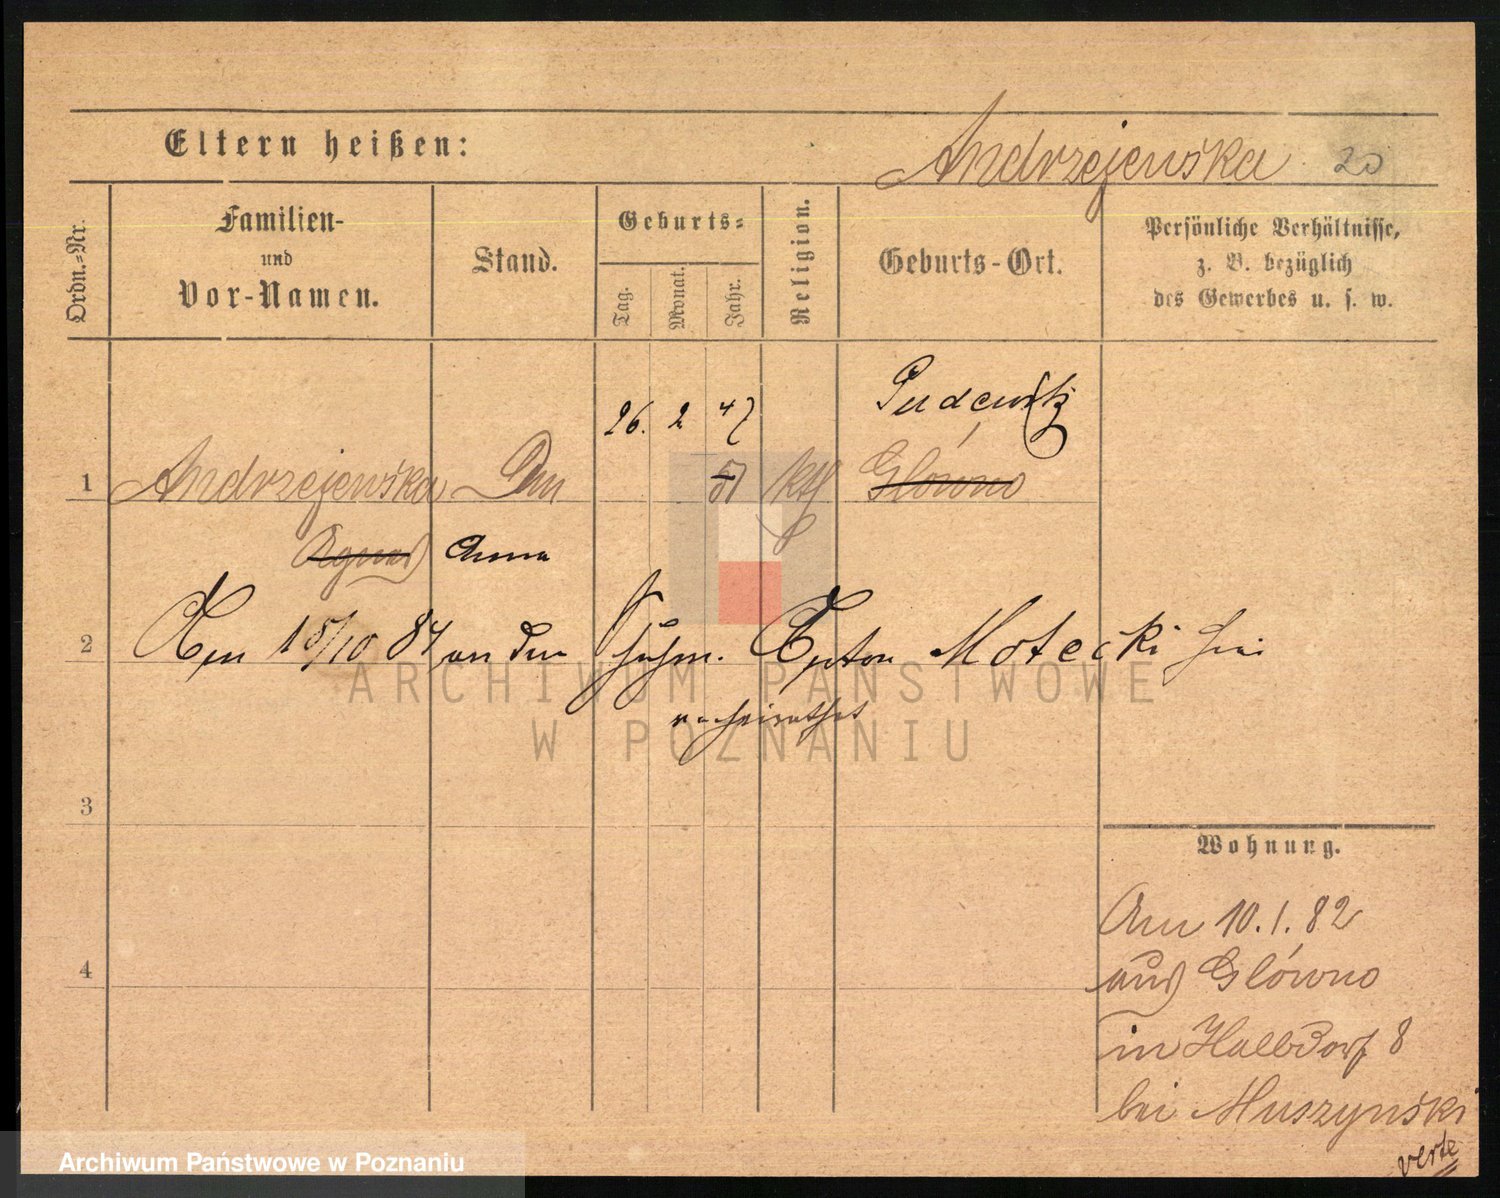 Eltern heißen:
Andrzejewska 20
Ordn.-Nr.
Familien-
und
Vor-Namen.
Stand.
Geburts-
Tag.
Monat.
Jahr.
Religion.
Geburts-Ort.
Persönliche Verhältnisse,
z. B. bezüglich
des Gewerbes u. s. w.
26. 2 47 Pudewitz
1 Andrzejewska 51 kth Glówno
Agnes Anna
2 Am 15/10 84 an den Schuhm. Anton Motecki hier
verheirathet
ARCHIWUM PAŃSTWOWE
W POZNANIU
3
4
Wohnung.
Am 10.1.82
aus Glówno
in Halbdorf 8
bei Muszyński
verte
Archiwum Państwowe w Poznaniu